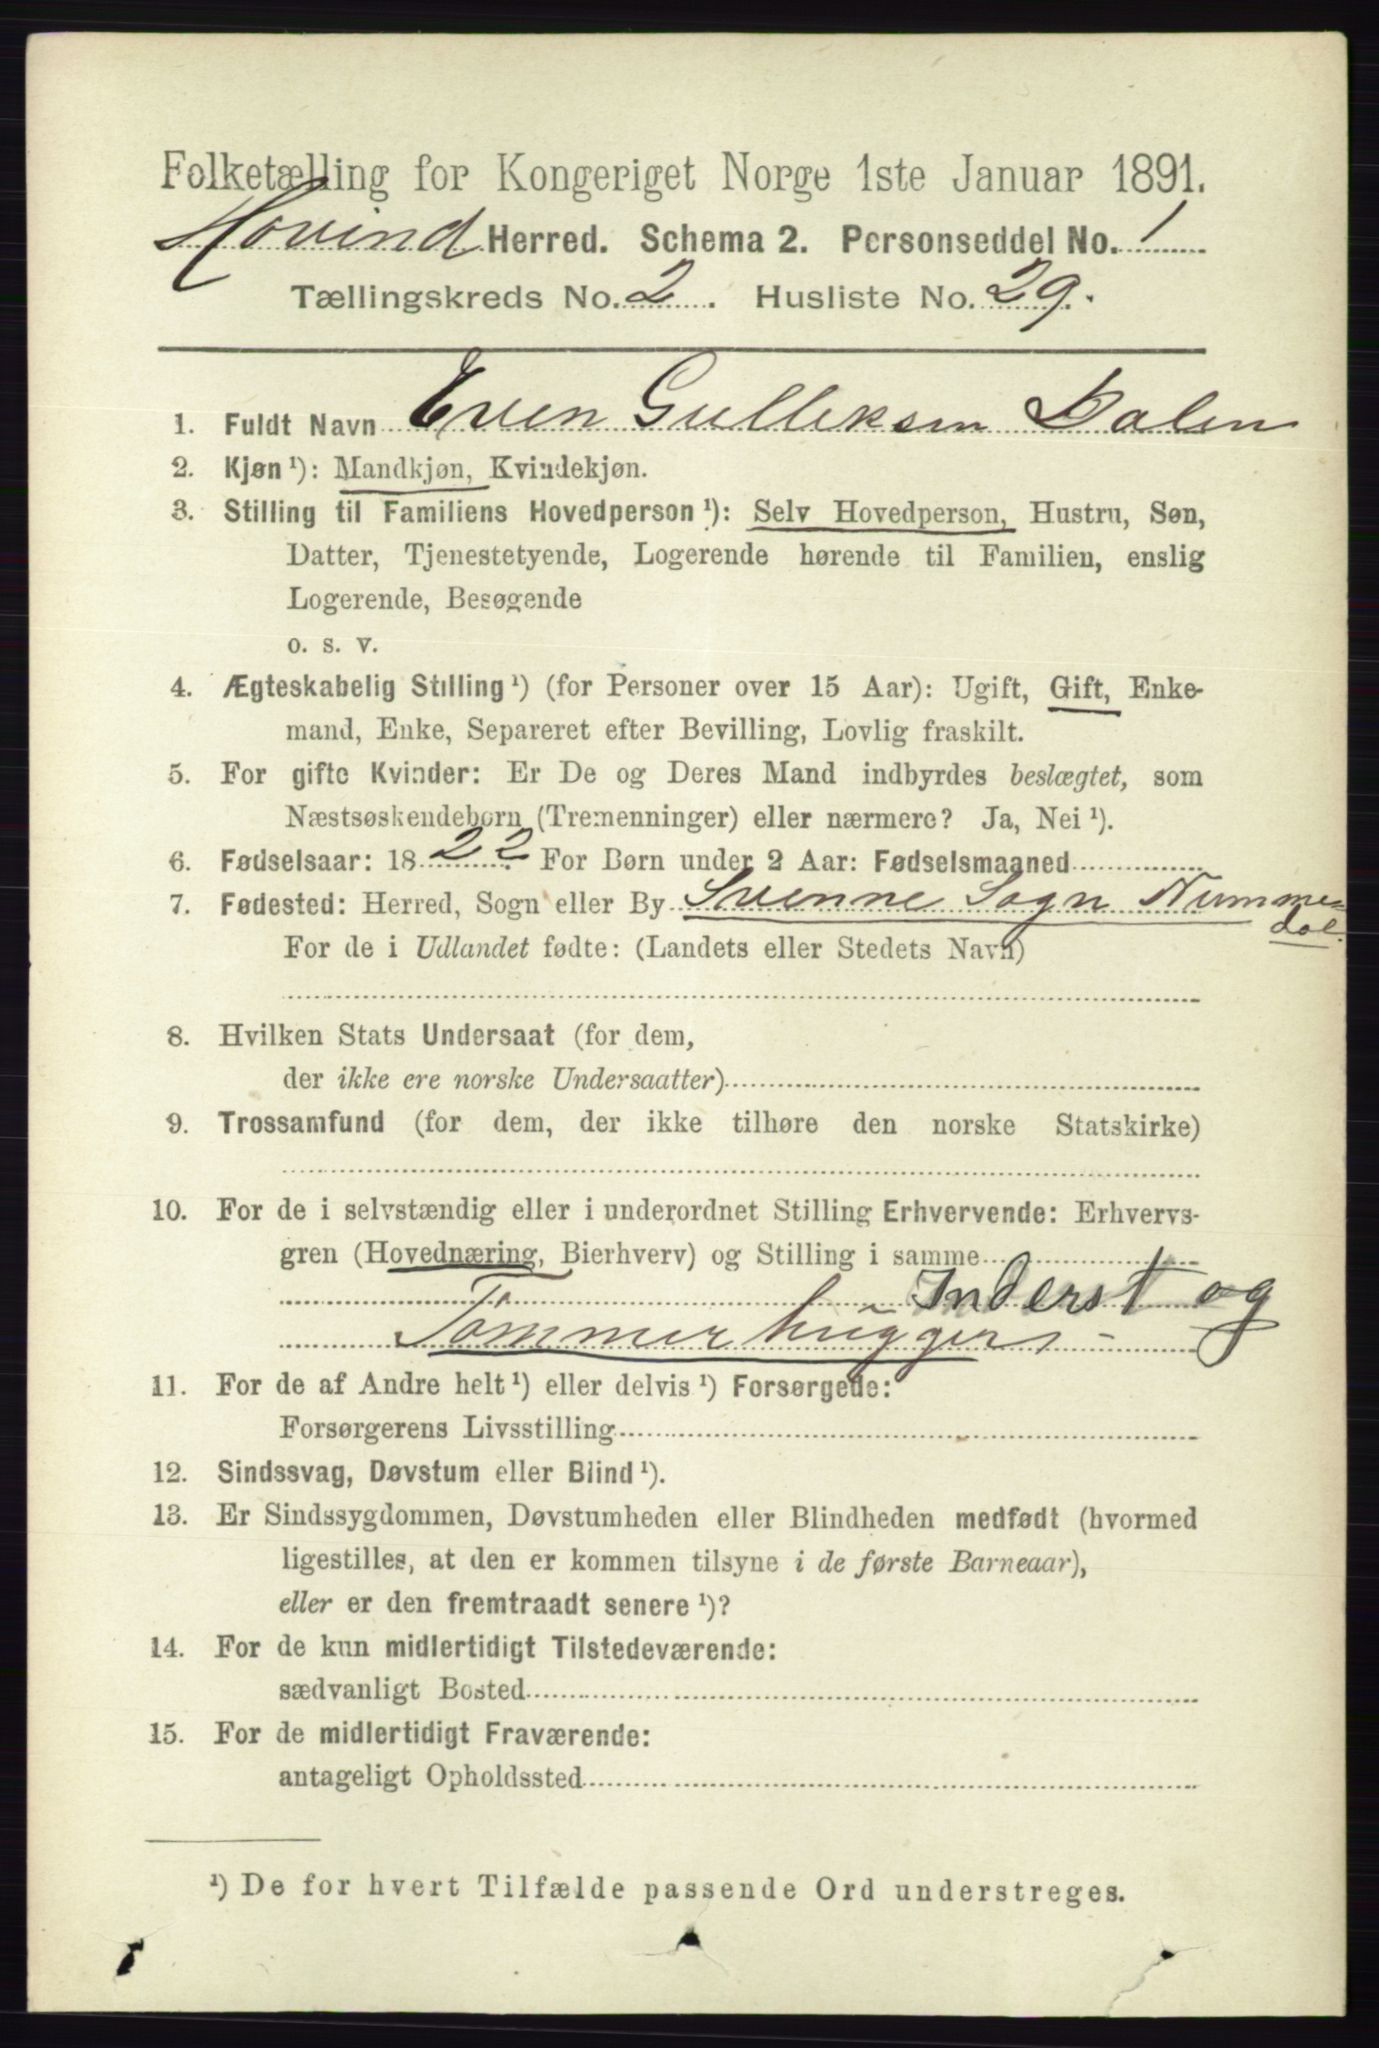 Folketælling for Kongeriget Norge 1ste Januar 1891.
Hovind Herred. Schema 2. Personseddel No. 1
Tællingskreds No. 2. Husliste No. 29.
1. Fuldt Navn Even Gulleksen Dalen
2. Kjøn ¹): Mandkjøn, Kvindekjøn.
3. Stilling til Familiens Hovedperson ¹): Selv Hovedperson, Hustru, Søn,
Datter, Tjenestetyende, Logerende hørende til Familien, enslig
Logerende, Besøgende
o. s. v.
4. Ægteskabelig Stilling ¹) (for Personer over 15 Aar): Ugift, Gift, Enke-
mand, Enke, Separeret efter Bevilling, Lovlig fraskilt.
5. For gifte Kvinder: Er De og Deres Mand indbyrdes beslægtet, som
Næstsøskendebørn (Tremenninger) eller nærmere? Ja, Nei ¹).
6. Fødselsaar: 1822 For Børn under 2 Aar: Fødselsmaaned
7. Fødested: Herred, Sogn eller By Svenne Sogn Numme-
dal.
For de i Udlandet fødte: (Landets eller Stedets Navn)
8. Hvilken Stats Undersaat (for dem,
der ikke ere norske Undersaatter)
9. Trossamfund (for dem, der ikke tilhøre den norske Statskirke)
10. For de i selvstændig eller i underordnet Stilling Erhvervende: Erhvervs-
gren (Hovednæring, Bierhverv) og Stilling i samme
Inderst og
Tømmerhugger -
11. For de af Andre helt ¹) eller delvis ¹) Forsørgede:
Forsørgerens Livsstilling
12. Sindssvag, Døvstum eller Blind ¹).
13. Er Sindssygdommen, Døvstumheden eller Blindheden medfødt (hvormed
ligestilles, at den er kommen tilsyne i de første Barneaar),
eller er den fremtraadt senere ¹)?
14. For de kun midlertidigt Tilstedeværende:
sædvanligt Bosted
15. For de midlertidigt Fraværende:
antageligt Opholdssted
¹) De for hvert Tilfælde passende Ord understreges.